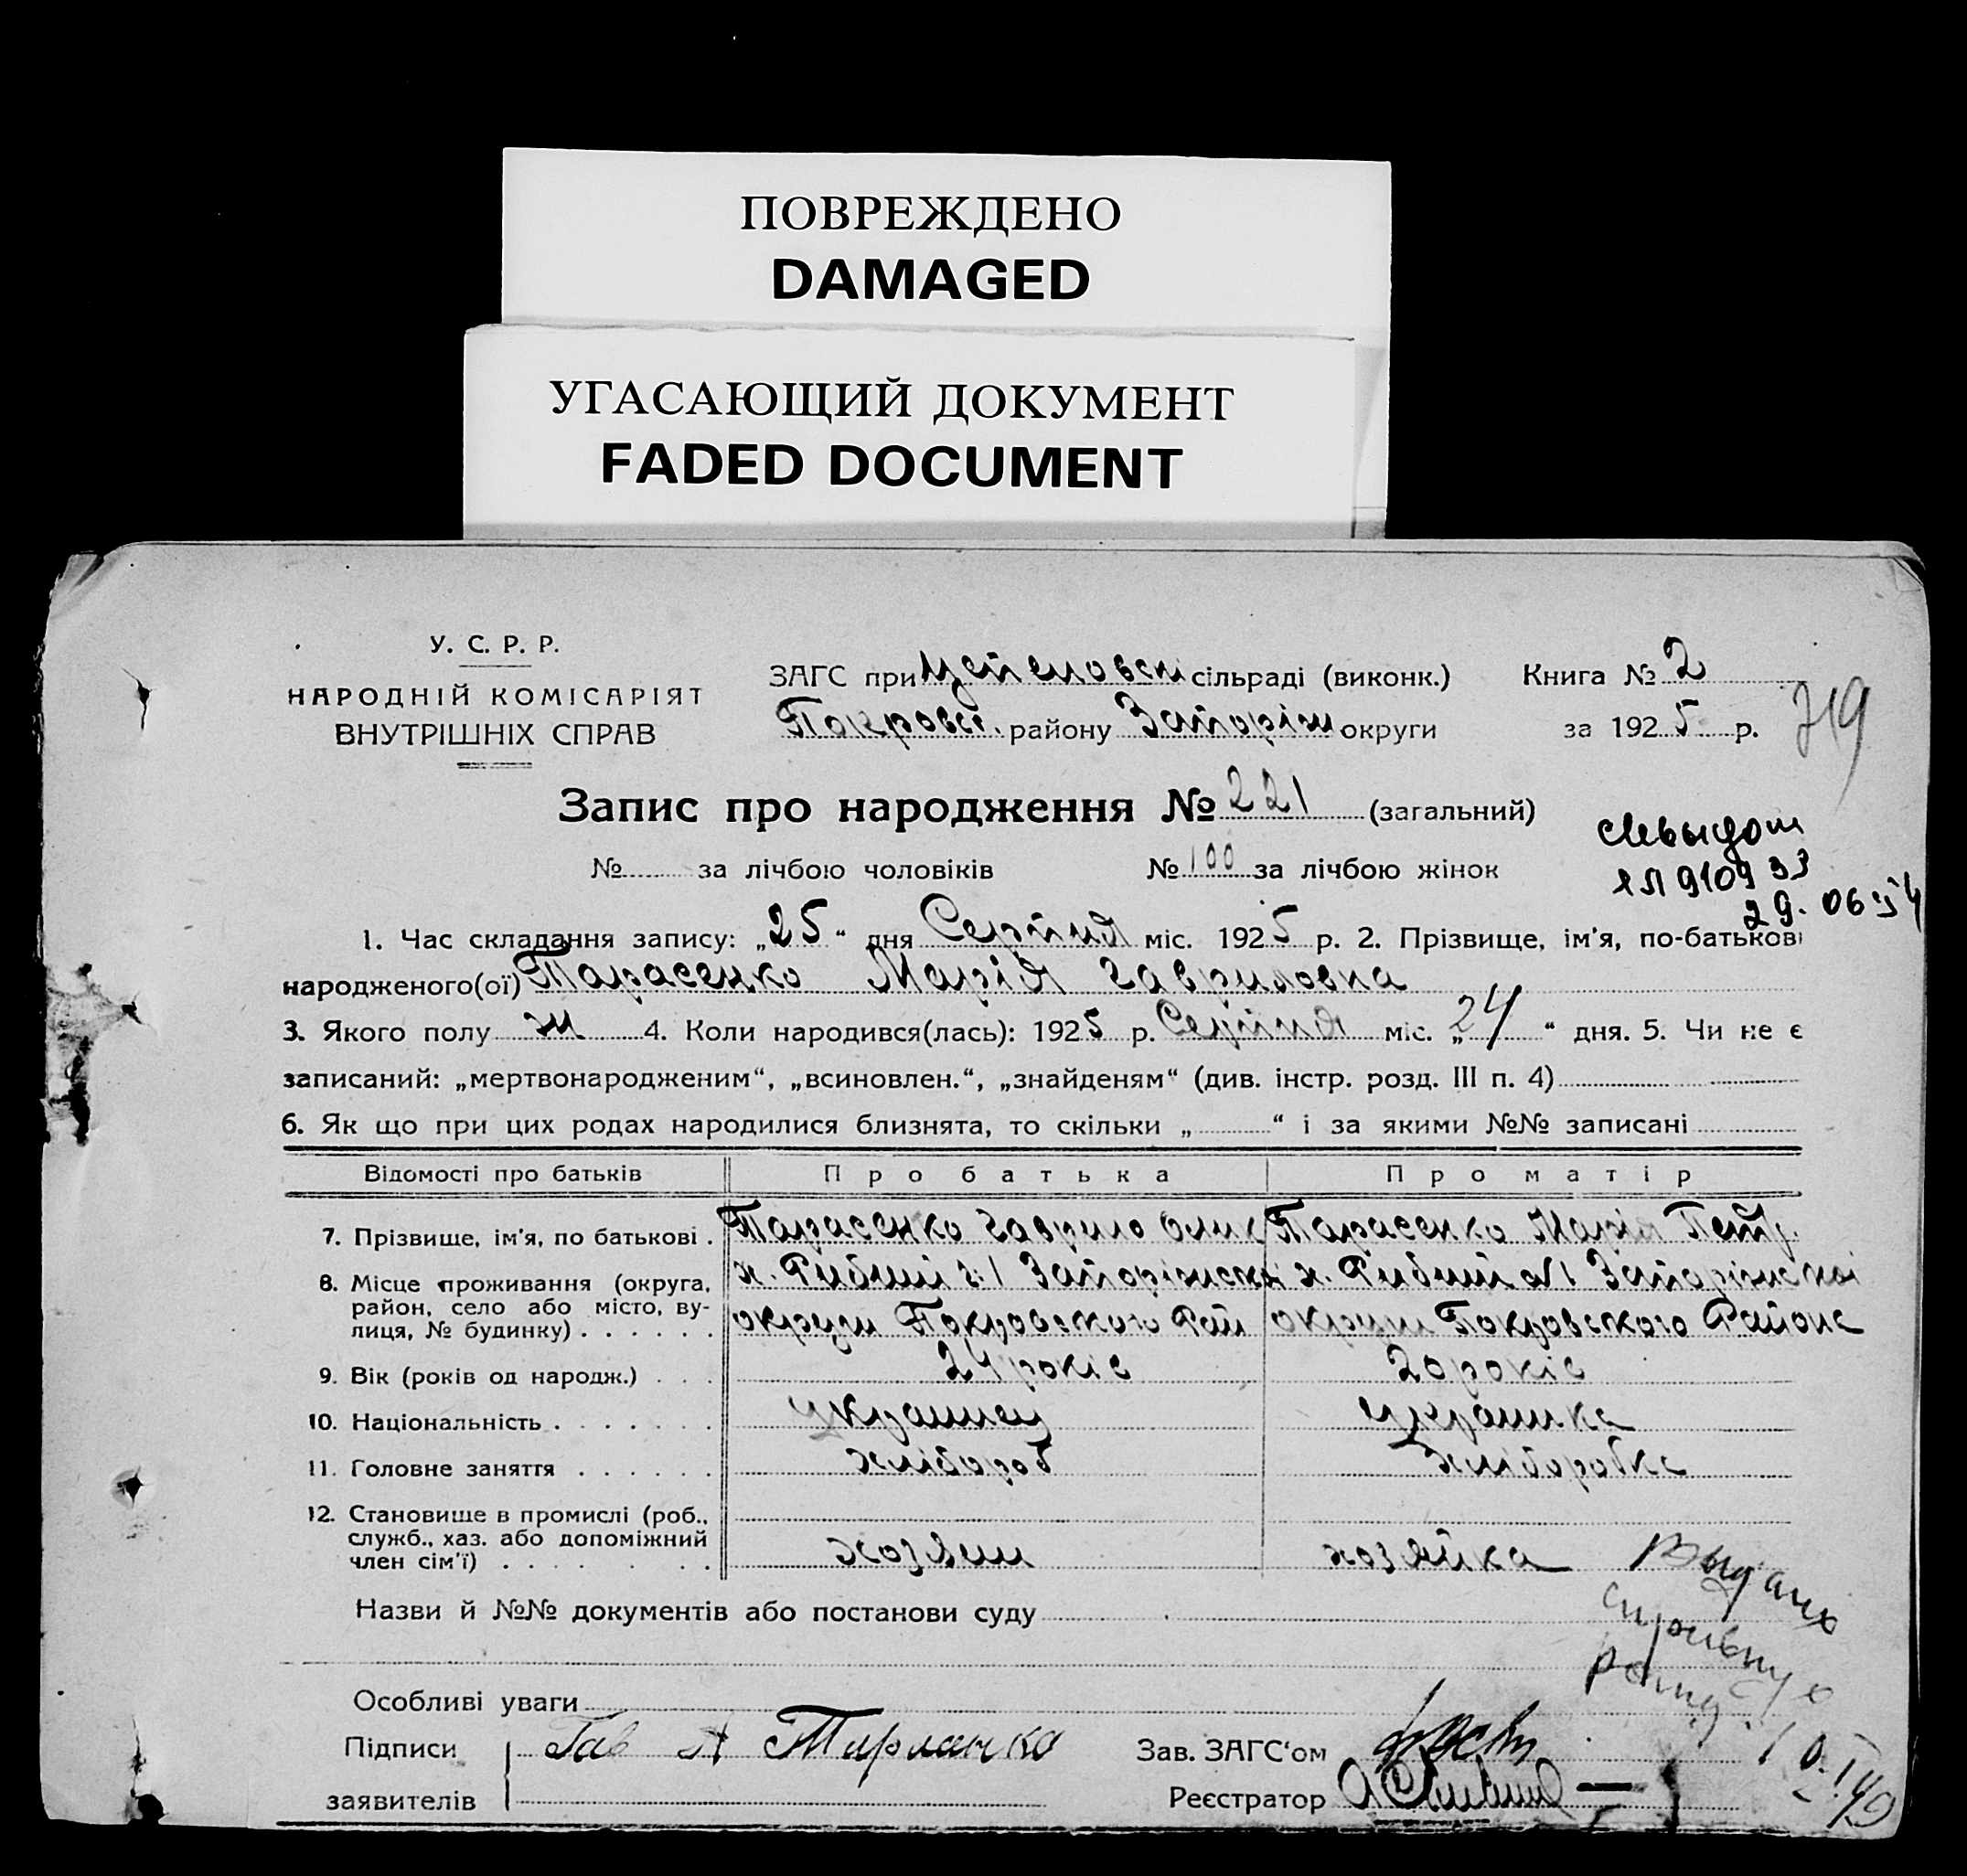 ПОВРЕЖДЕНО
DAMAGED
УГАСАЮЩИЙ ДОКУМЕНТ
FADED DOCUMENT
У. С. Р. Р.
НАРОДНІЙ КОМІСАРІЯТ
ВНУТРІШНІХ СПРАВ
ЗАГС при сільраді (виконк.) Книга № 2
Покровс. району Запоріж округи за 1925 р.
719
Запис про народження № 221 (загальний)
№ за лічбою чоловіків № 100 за лічбою жінок
910933
29. 06 54
1. Час складання запису: „25“ дня Серпня міс. 1925 р. 2. Прізвище, ім'я, по-батькові
народженого(ої) Тарасенко Марія Гавриловна
3. Якого полу ж 4. Коли народився(лась): 1925 р. Серпня міс. „24“ дня. 5. Чи не є
записаний: „мертвонародженим“, „всиновлен.“, „знайденям“ (див. інстр. розд. III п. 4)
6. Як що при цих родах народилися близнята, то скільки „ “ і за якими №№ записані
Відомості про батьків Про батька Про матір
7. Прізвище, ім'я, по батькові . Тарасенко Гаврило Тарасенко Марія Петр.
8. Місце проживання (округа, район, село або місто, вулиця, № будинку) . . . . . .
х. Рибний Запоріжской х. Рибний №1 Запоріжської
округи Покровського Рай округи Покровського Району
9. Вік (років од народж.) . . . 24 років 20 років
10. Національність . . . . . . . украинец украинка
11. Головне заняття . . . . . . хлібороб хліборобка
12. Становище в промислі (роб., служб., хаз. або допоміжний член сім'ї) . . . . . . хозяин хозяйка
Назви й №№ документів або постанови суду
Особливі уваги
Підписи заявителів Гав
Зав. ЗАГС'ом
Реєстратор